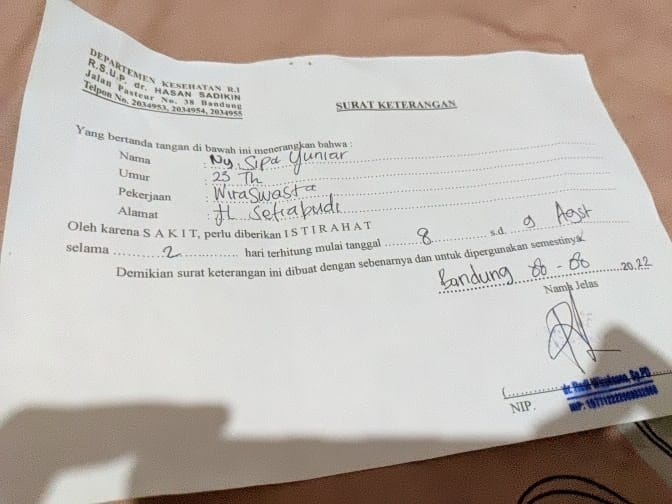 DEPARTEMEN KESEHATAN R.I
R.S.U.P. dr. HASAN SADIKIN
Jalan Pasteur No. 38 Bandung
Telpon No. 2034953, 2034954, 2034955
SURAT KETERANGAN
Yang bertanda tangan di bawah ini menerangkan bahwa :
Nama : Ny. Sipa Yuniar
Umur : 23 Th
Pekerjaan : Wiraswasta
Alamat : Jl Setiabudi
Oleh karena S A K I T, perlu diberikan I S T I R A H A T
selama 2 hari terhitung mulai tanggal 8 s.d. 9 Agst
Demikian surat keterangan ini dibuat dengan sebenarnya dan untuk dipergunakan semestinya.
Bandung 08 - 08 2022
Nama Jelas
(
NIP.